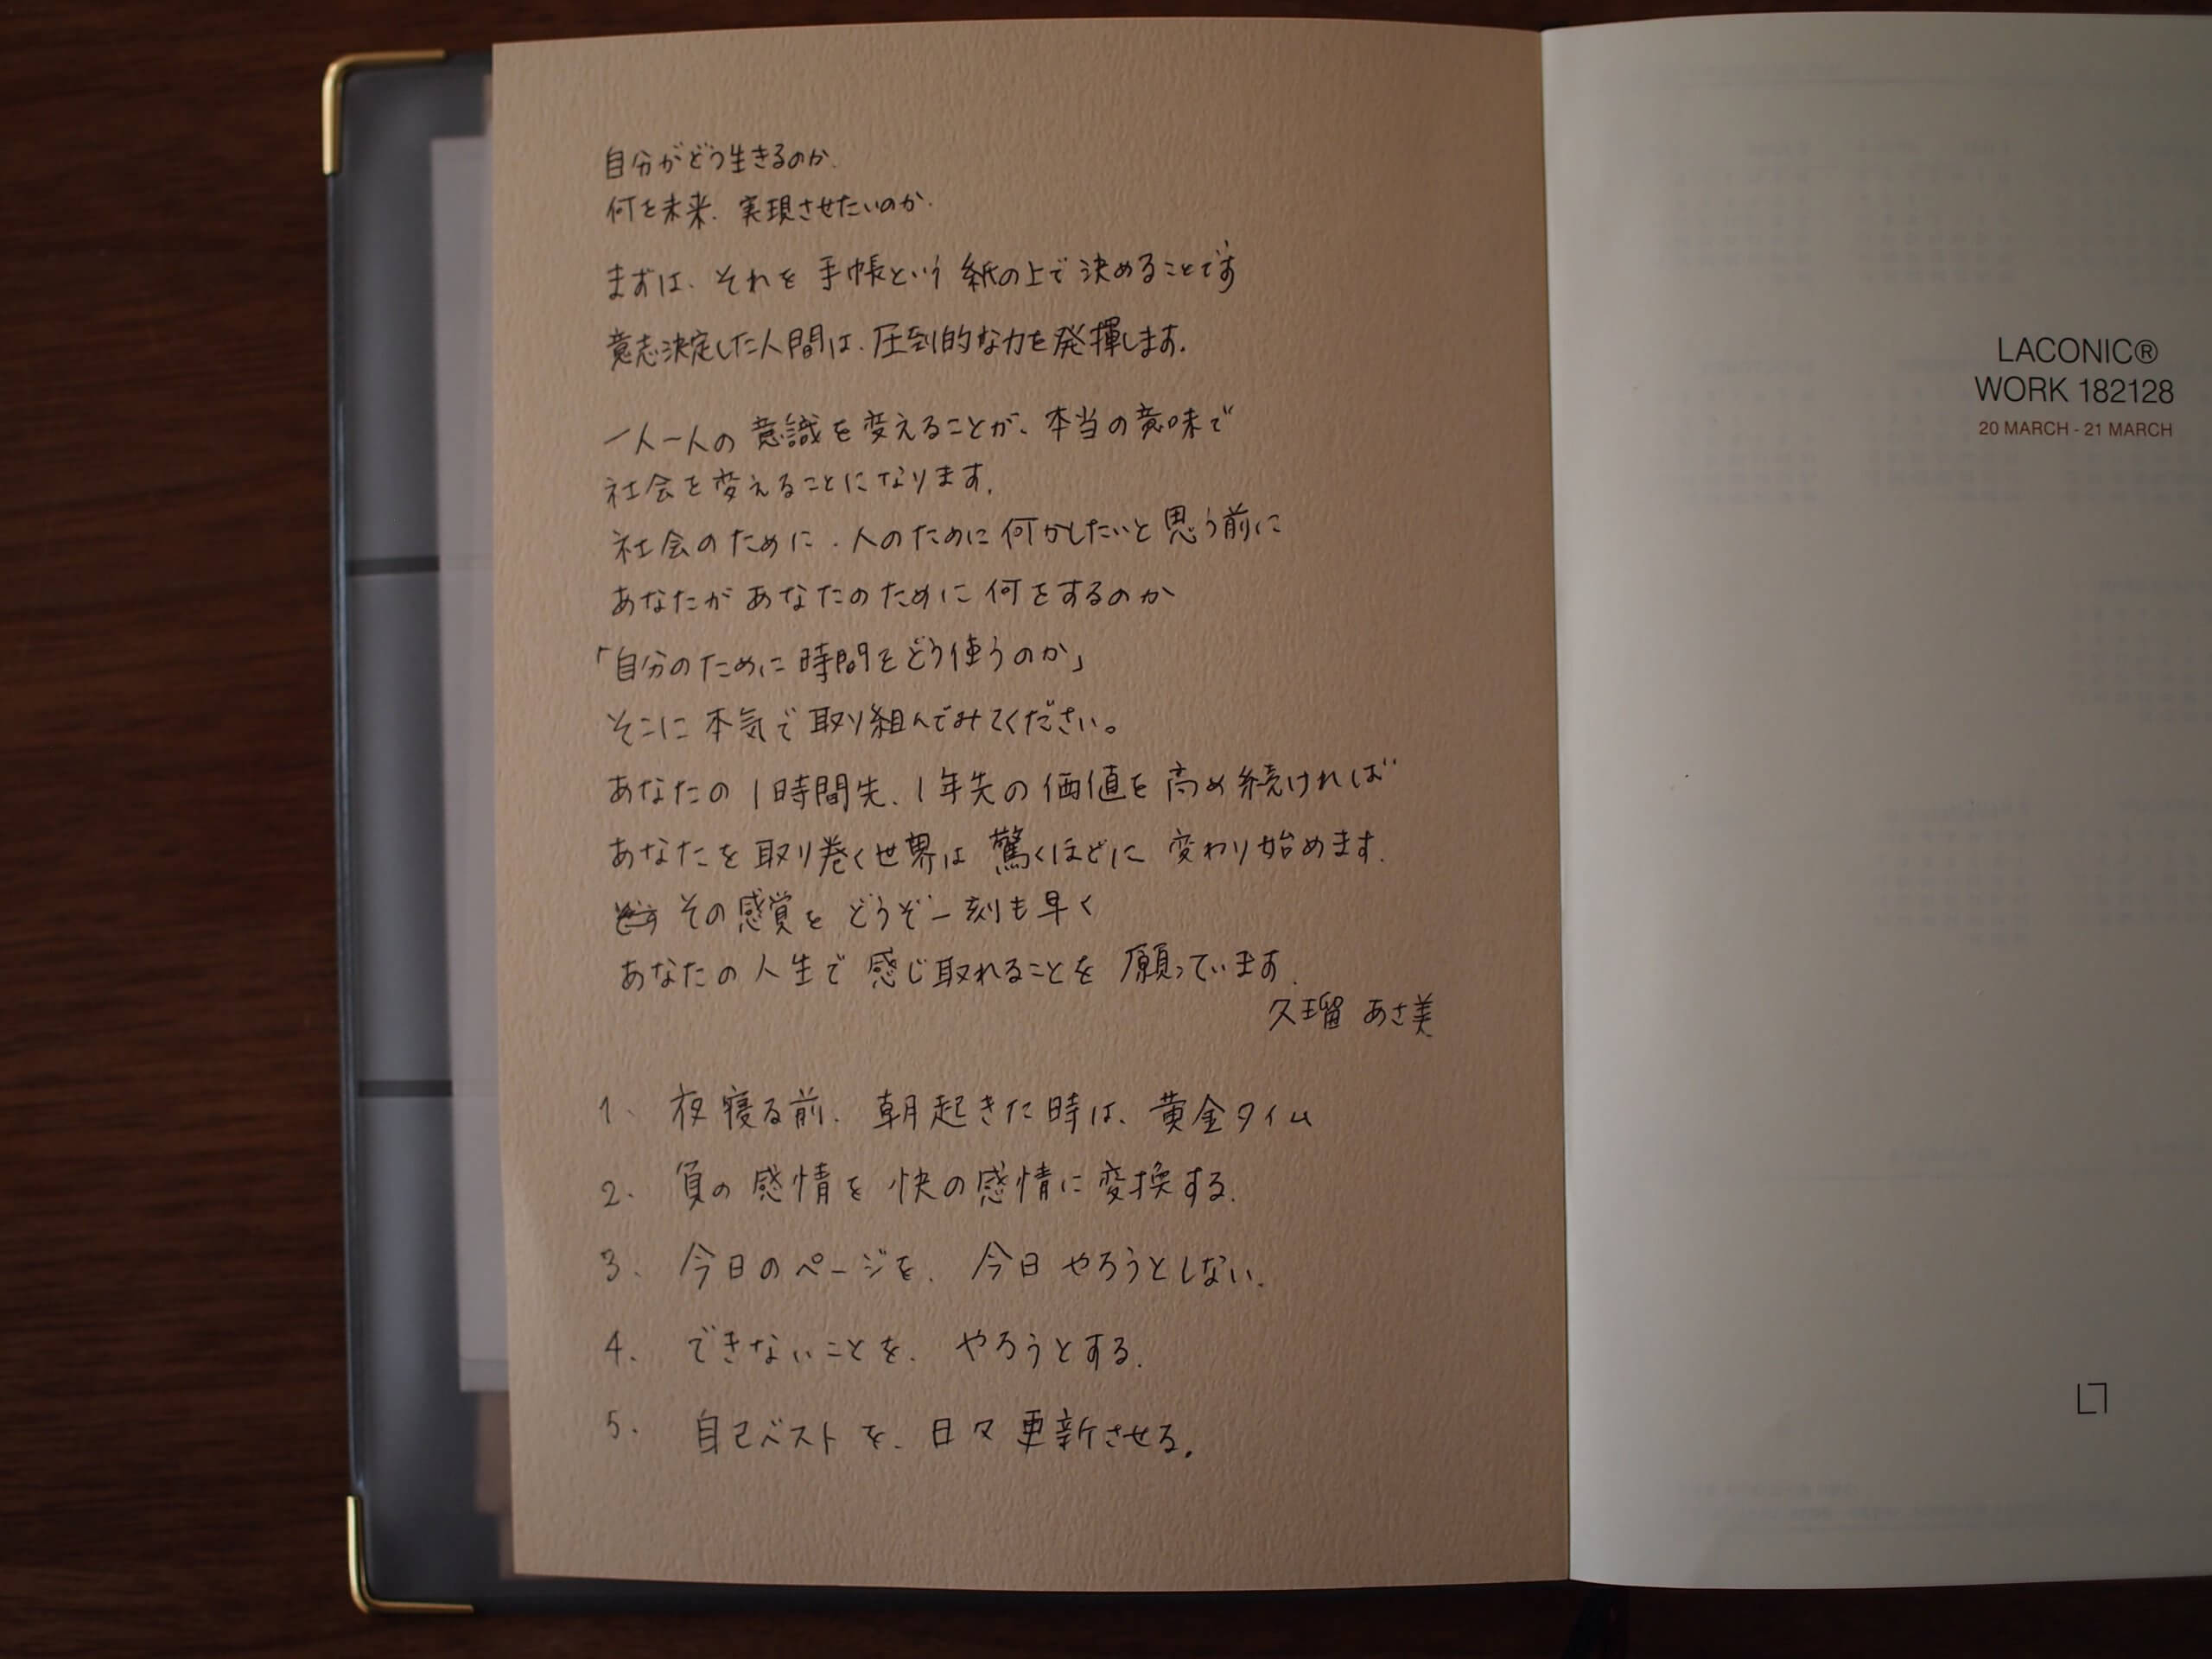 自分がどう生きるのか.
何を未来、実現させたいのか.
まずは、それを 手帳という 紙の上で 決めることです
意志決定した人間は、圧倒的な力を発揮します.
一人一人の 意識を変えることが、本当の意味で
社会を変えることになります.
社会のために、人のために何かしたいと思う前に
あなたが あなたのために 何をするのか
「自分のために時間をどう使うのか」
そこに本気で取り組んでみてください。
あなたの 1時間先、1年先の価値を高め続ければ
あなたを取り巻く世界は 驚くほどに 変わり始めます.
その感覚を どうぞ一刻も早く
あなたの人生で 感じ取れることを 願っています.
久瑠 あさ美
1、夜寝る前、朝起きた時は、黄金タイム
2. 負の感情を 快の感情に変換する.
3、今日のページを、今日やろうとしない.
4、できないことを、やろうとする.
5. 自己ベストを、日々更新させる.
LACONIC®
WORK 182128
20 MARCH - 21 MARCH